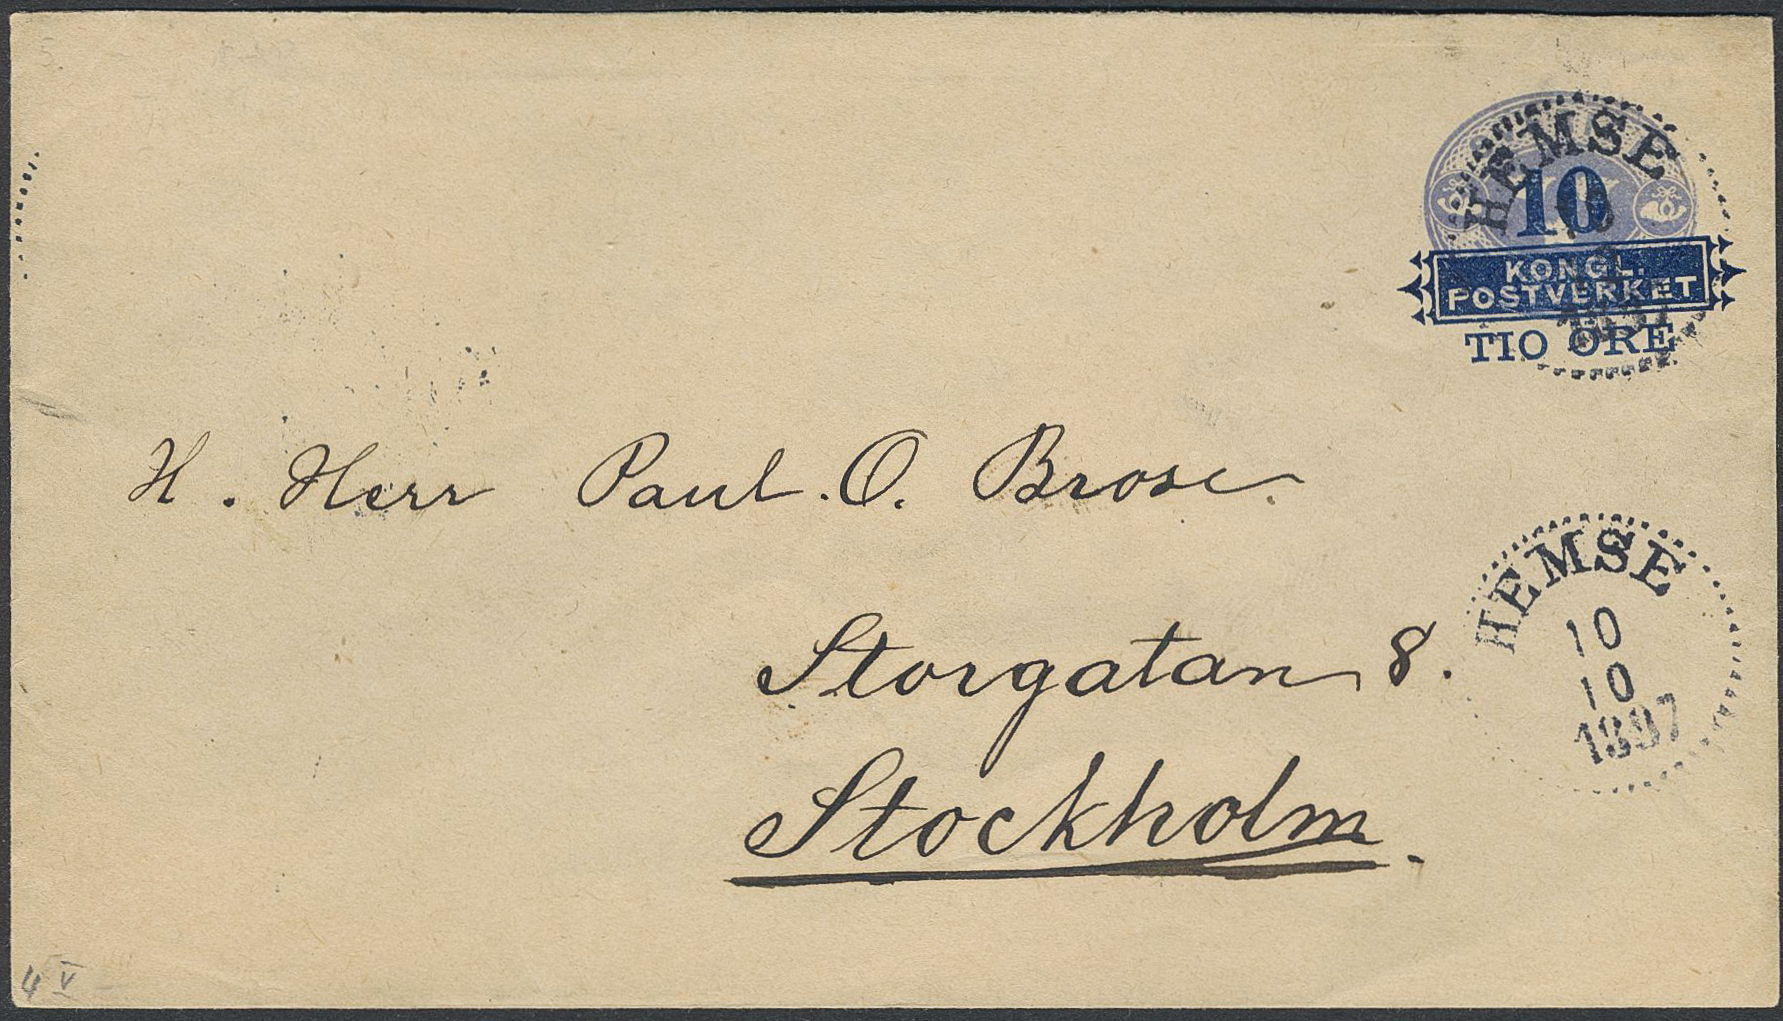 HEMSE
10
KONGL.
POSTVERKET
TIO ÖRE
H. Herr Paul. O. Brose.
HEMSE
10
10
1897
Storgatan 8.
Stockholm.
4 V